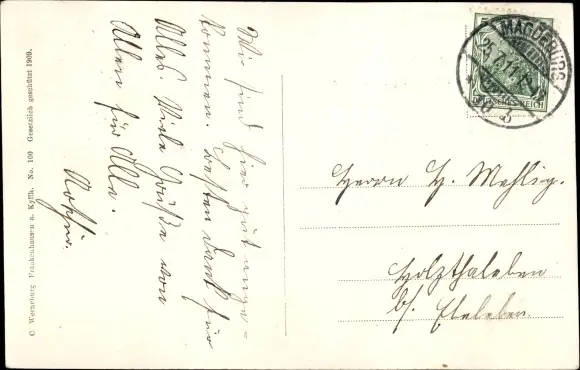 C. Werneburg, Frankenhausen a. Kyffh. No. 100 Gesetzlich geschützt 1909.
Wir sind hier gut ange-
kommen. Besten Dank für
Alles. Viele Grüße von
Allen für Alle.
MAGDEBURG
25.7.11.
3
DEUTSCHES REICH
Herrn H. Mehlig.
Holzthaleben
b/. Ebeleben.